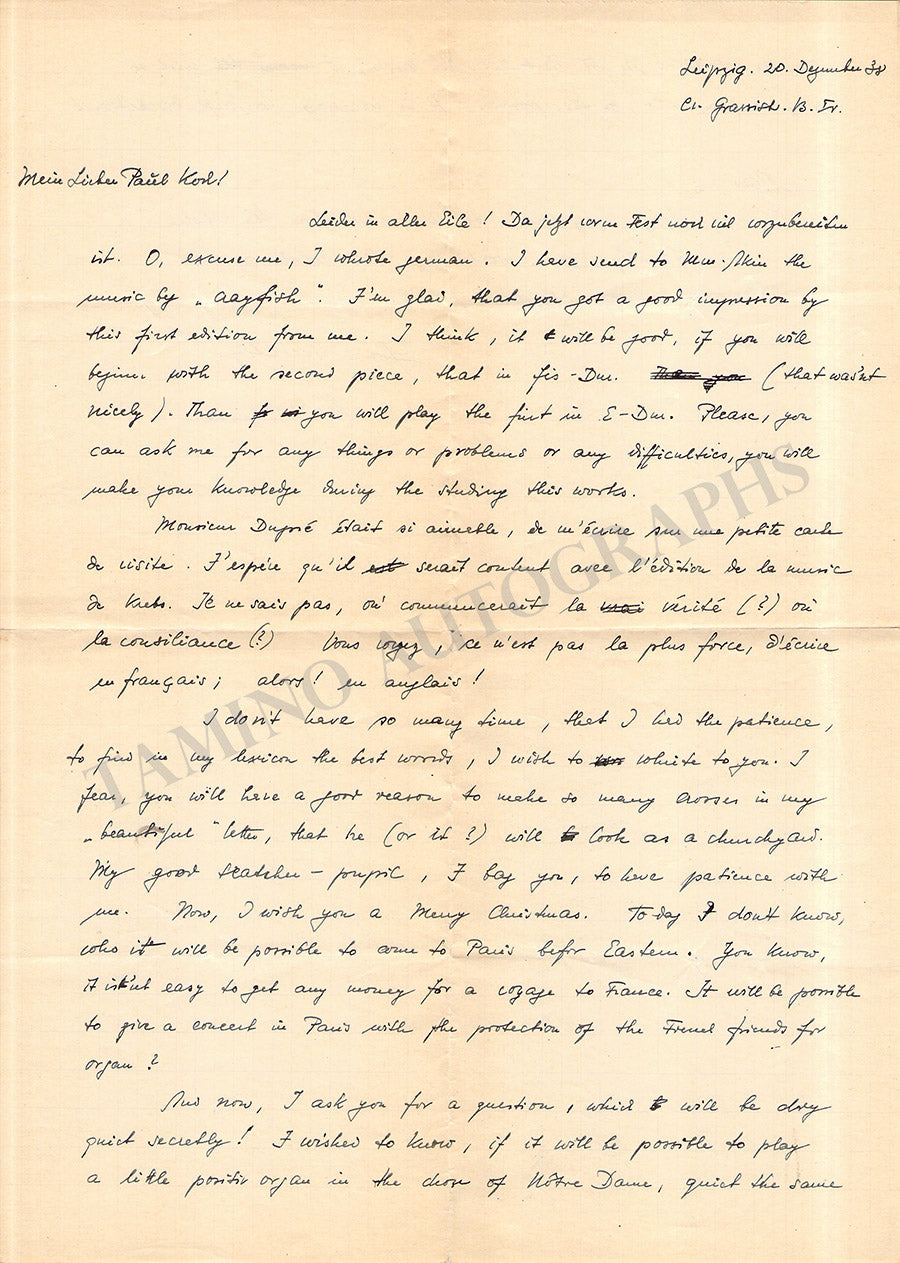 Leipzig. 20. Dezember 38
Mein Lieber Paul Koch!
Leider in aller Eile! Da jetzt vorm Fest noch viel vorzubereiten
ist. O, excuse me, I whrote german. I have send to Mm. the
music by „ ". I'm glad, that you got a good impression by
this first edition from me. I think, it will be good, if you will
begin with the second piece, that in fis-Dur. (that wasn't
nicely). Than you will play the first in E-Dur. Please, you
can ask me for any things or problems or any difficulties, you will
make your knowledge during the studing this works.
Monsieur Dupré était si aimable, de m'écrire sur une petite carte
de visite. J'espère qu'il serait content avec l'édition de la music
de Krebs. Je ne sais pas, où commencerait la vérité (?) où
la consiliance (?) Vous voyez, ce n'est pas la plus force, d'écrire
en français; alors! en anglais!
I don't have so many time, that I had the patience,
to find in my lexicon the best words, I wish to whrite to you. I
fear, you will have a good reason to make so many crosses in my
„beautiful" letter, that he (or it?) will look as a churchyard.
My good teatcher-pupil, I bag you, to have patience with
me. Now, I wish you a Merry Christmas. To day I don't know,
who it will be possible to come to Paris befor Eastern. You know,
it is'nt easy to get any money for a voyage to France. It will be possible
to give a concert in Paris with the protection of the French friends for
organ?
And now, I ask you for a question, which will be dry
quiet secretly! I wished to know, if it will be possible to play
a little positiv organ in the chore of Nôtre Dame, quiet the same
TAMINO AUTOGRAPHS